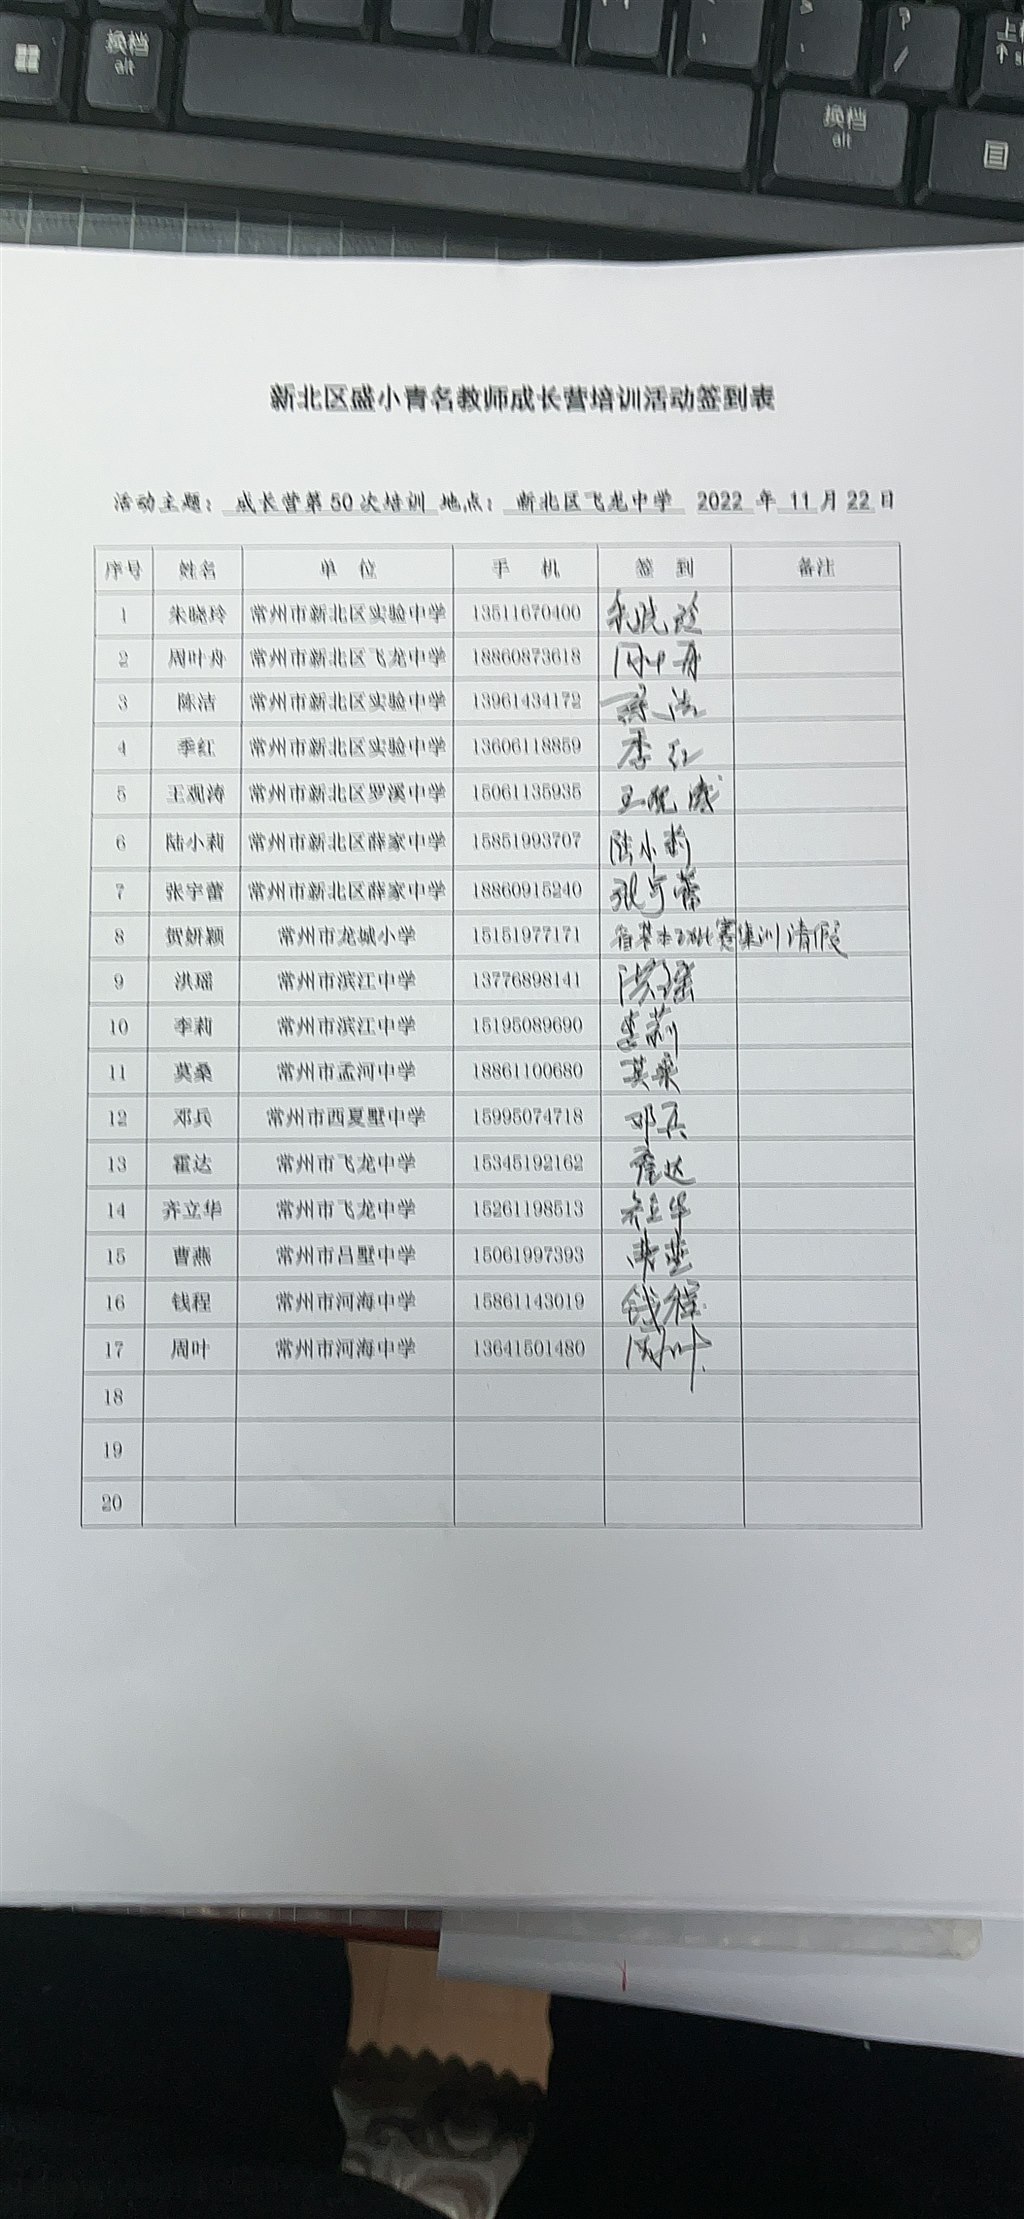 alt
alt
新北区盛小青名教师成长营培训活动签到表
活动主题: 成长营第50次培训 地点: 新北区飞龙中学 2022 年 11 月 22 日
序号 姓名 单 位 手 机 签 到 备注
1 朱晓玲 常州市新北区实验中学 13511670400 朱晓玲
2 周叶舟 常州市新北区飞龙中学 18860873618 周叶舟
3 陈洁 常州市新北区实验中学 13961434172 陈洁
4 季红 常州市新北区实验中学 13606118859 季红
5 王观涛 常州市新北区罗溪中学 15061135935 王观涛
6 陆小莉 常州市新北区薛家中学 15851993707 陆小莉
7 张宇蕾 常州市新北区薛家中学 18860915240 张宇蕾
8 贺妍颖 常州市龙城小学 15151977171 省基本功比赛集训请假
9 洪瑶 常州市滨江中学 13776898141 洪瑶
10 李莉 常州市滨江中学 15195089690 李莉
11 莫桑 常州市孟河中学 18861100680 莫桑
12 邓兵 常州市西夏墅中学 15995074718 邓兵
13 霍达 常州市飞龙中学 15345192162 霍达
14 齐立华 常州市飞龙中学 15261198513 齐立华
15 曹燕 常州市吕墅中学 15061997393 曹燕
16 钱程 常州市河海中学 15861143019 钱程
17 周叶 常州市河海中学 13641501480 周叶
18
19
20